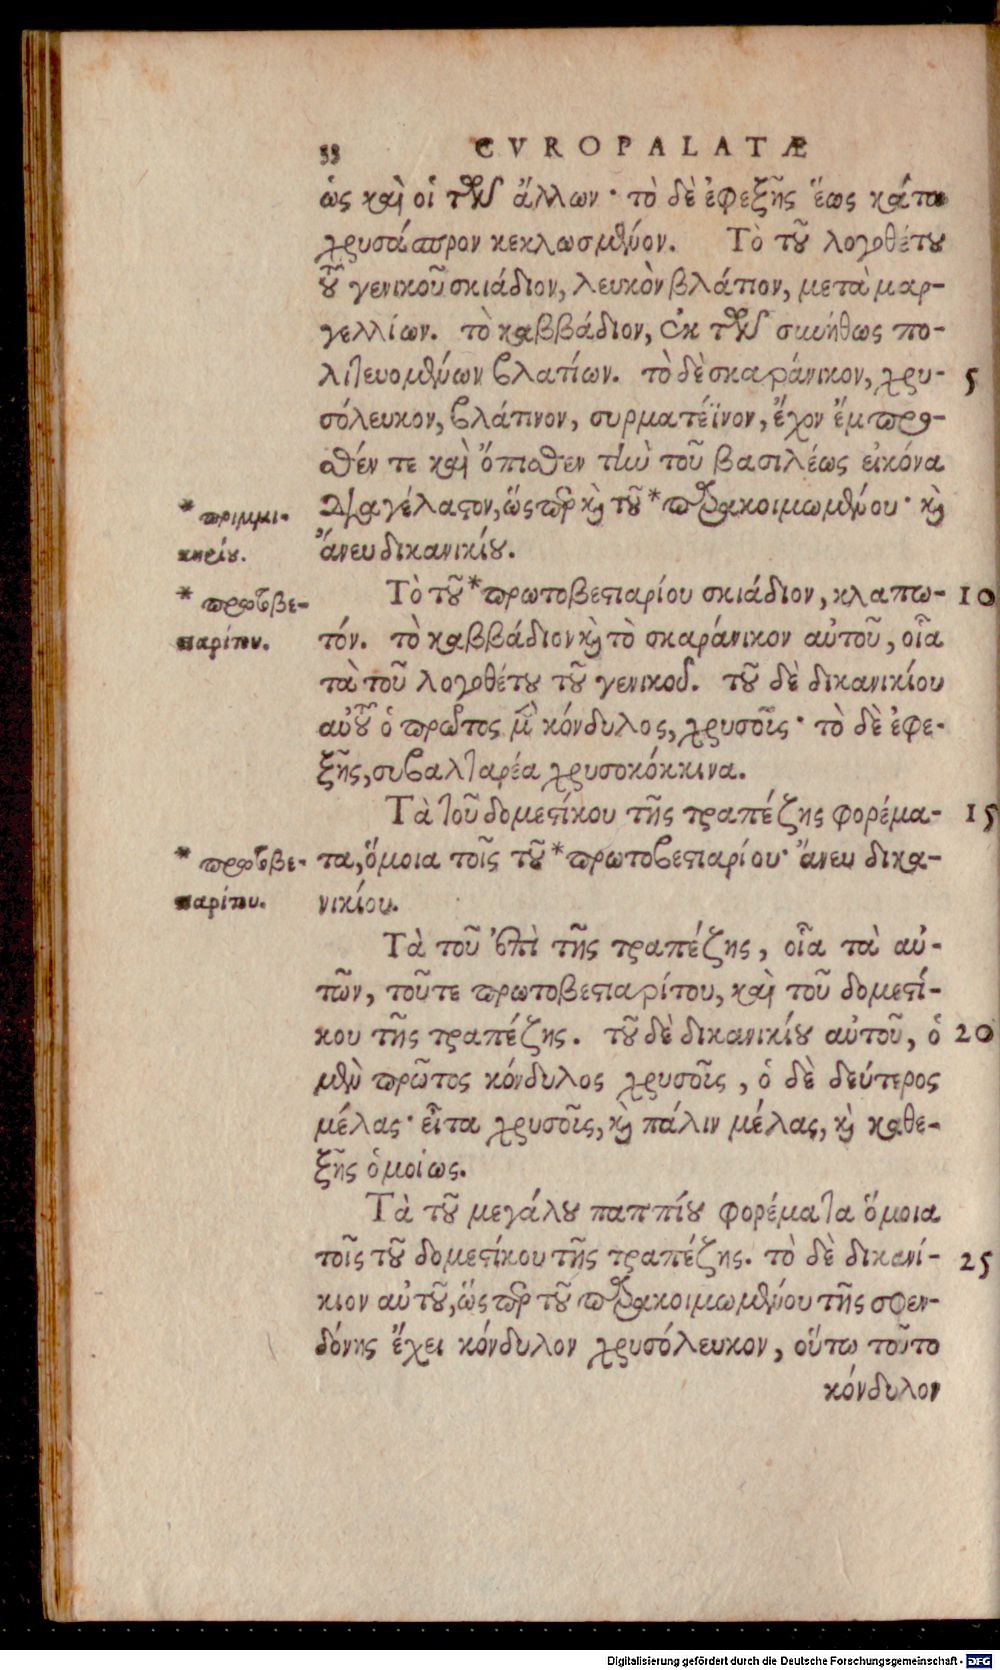 33 CVROPALATÆ
ὡς καὶ οἱ τῶν ἄλλων· τὸ δὲ ἐφεξῆς ἕως κάτω
χρυσάσπρον κεκλωσμένον. Τὸ τοῦ λογοθέτου
τοῦ γενικοῦ σκιάδιον, λευκὸν βλάτιον, μετὰ μαρ-
γελλίων. τὸ καββάδιον, ἐκ τῶν συνήθως πο-
λιτευομένων βλατίων. τὸ δὲ σκαράνικον, χρυ- 5
σόλευκον, βλάτινον, συρματέϊνον, ἔχον ἔμπρο-
σθέν τε καὶ ὄπισθεν τὴν τοῦ βασιλέως εἰκόνα
διαγέλαστον, ὥσπερ καὶ τοῦ * παρακοιμωμένου· καὶ
ἄνευ δικανικίου.
* πριμμι-
κηρίου.
Τὸ τοῦ * πρωτοβεστιαρίου σκιάδιον, κλαπω- 10
τόν. τὸ καββάδιον καὶ τὸ σκαράνικον αὐτοῦ, οἷα
τὰ τοῦ λογοθέτου τοῦ γενικοῦ. τοῦ δὲ δικανικίου
αὐτοῦ ὁ πρῶτος μὲν κόνδυλος, χρυσοῦς· τὸ δὲ ἐφε-
ξῆς, συβαλταρέα χρυσοκόκκινα.
* πρωτοβε-
στιαρίτου.
Τὰ τοῦ δομεστίκου τῆς τραπέζης φορέμα- 15
τα, ὅμοια τοῖς τοῦ * πρωτοβεστιαρίου· ἄνευ δικα-
νικίου.
* πρωτοβε-
στιαρίτου.
Τὰ τοῦ ἐπὶ τῆς τραπέζης, οἷα τὰ αὐ-
τῶν, τοῦτε πρωτοβεστιαρίτου, καὶ τοῦ δομεστί-
κου τῆς τραπέζης. τοῦ δὲ δικανικίου αὐτοῦ, ὁ 20
μὲν πρῶτος κόνδυλος χρυσοῦς, ὁ δὲ δεύτερος
μέλας· εἶτα χρυσοῦς, καὶ πάλιν μέλας, καὶ καθε-
ξῆς ὁμοίως.
Τὰ τοῦ μεγάλου παππίου φορέματα ὅμοια
τοῖς τοῦ δομεστίκου τῆς τραπέζης. τὸ δὲ δικανί- 25
κιον αὐτοῦ, ὥσπερ τοῦ παρακοιμωμένου τῆς σφεν-
δόνης ἔχει κόνδυλον χρυσόλευκον, οὕτω τοῦτο
κόνδυλον
Digitalisierung gefördert durch die Deutsche Forschungsgemeinschaft - DFG